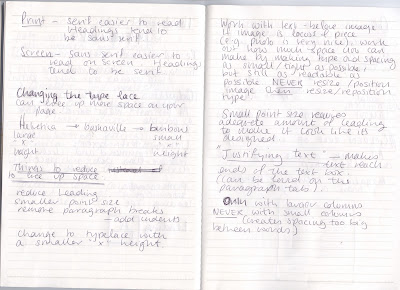 Print - serif easier to read
Headings tend to
be sans serif.
Screen - Sans serif easier to
read on screen. Headings
tend to be serif.
Changing the type face
can free up more space on your
page.
Helvetica → →
large small
"x" "x"
height height
Things to reduce
to use up space
reduce leading
smaller point size
remove paragraph breaks
- add indents
change to typeface with
a smaller "x" height.
Work with text before image
if image is focus of piece
(e.g. photo is very nice). work
out how much space you can
make by making type and spacing
as small/tight as possible,
but still as readable as
possible NEVER resize/position
image then resize/reposition
type
Small point size requires
adequate amount of leading
to make it look like its
designed
"Justifying text" - makes
text reach
ends of the text box.
(can be found on the
paragraph tab).
Only with columns
NEVER with small columns
(creates spacing too big
between words)